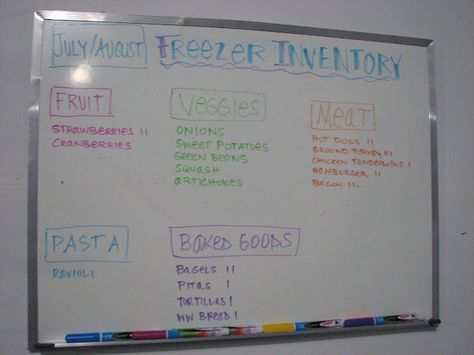 July/August Freezer Inventory
Fruit
Strawberries II
Cranberries
Veggies
Onions
Sweet Potatoes
Green Beans
Squash
Artichokes
Meat
Hot Dogs II
Ground Turkey III
Chicken Tenderloins I
Hamburger II
Bacon II
Pasta
Ravioli
Baked Goods
Bagels II
Pitas I
Tortillas I
WW Bread I